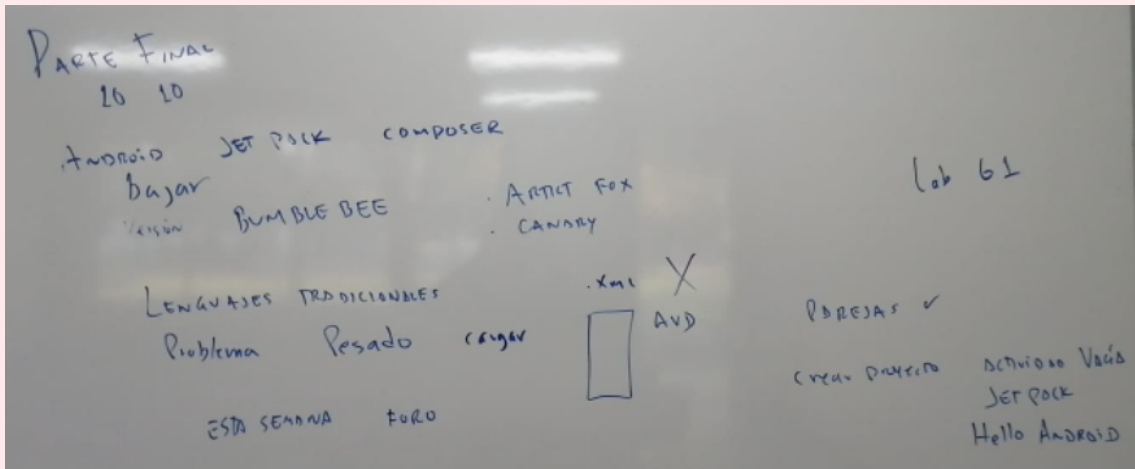 PARTE FINAL
10 10
.ANDROID JET PACK COMPOSER
bajar
Versión BUMBLEBEE . ARTICT FOX
. CANARY
Lab 61
LENGUAJES TRADICIONALES .xml X
Problema Pesado cargar AVD
PAREJAS ✓
ESTA SEMANA FORO
Crear proyecto ACTIVIDAD Vacía
JET PACK
Hello ANDROID